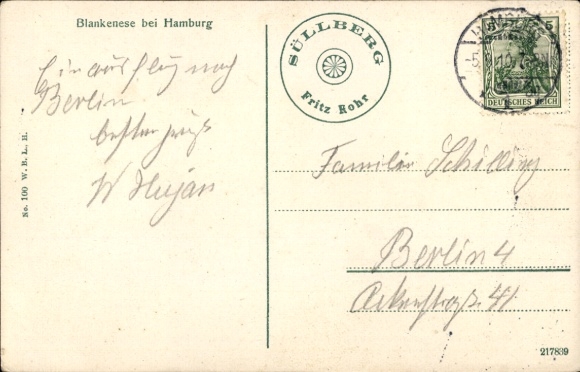 Blankenese bei Hamburg
SÜLLBERG
Fritz Rohr
5
DEUTSCHES REICH
Ein ausflug nach
Berlin
besten gruß
W Hujan
Familie Schilling
Berlin 4
Ackerstraße 41
No. 100 W. B. L., H.
217839